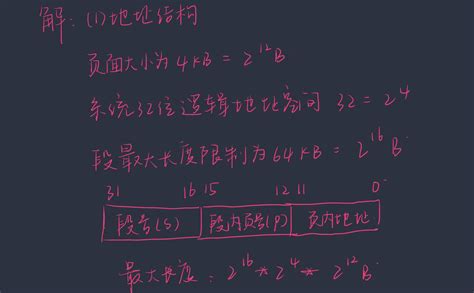 解：(1)地址结构
页面大小为4KB = 2^12B
系统32位逻辑地址空间 32 = 2^4
段最大长度限制为64KB = 2^16B
31 16 15 12 11 0
段号(S) 段内页号(P) 页内地址
最大长度：2^16 * 2^4 * 2^12B